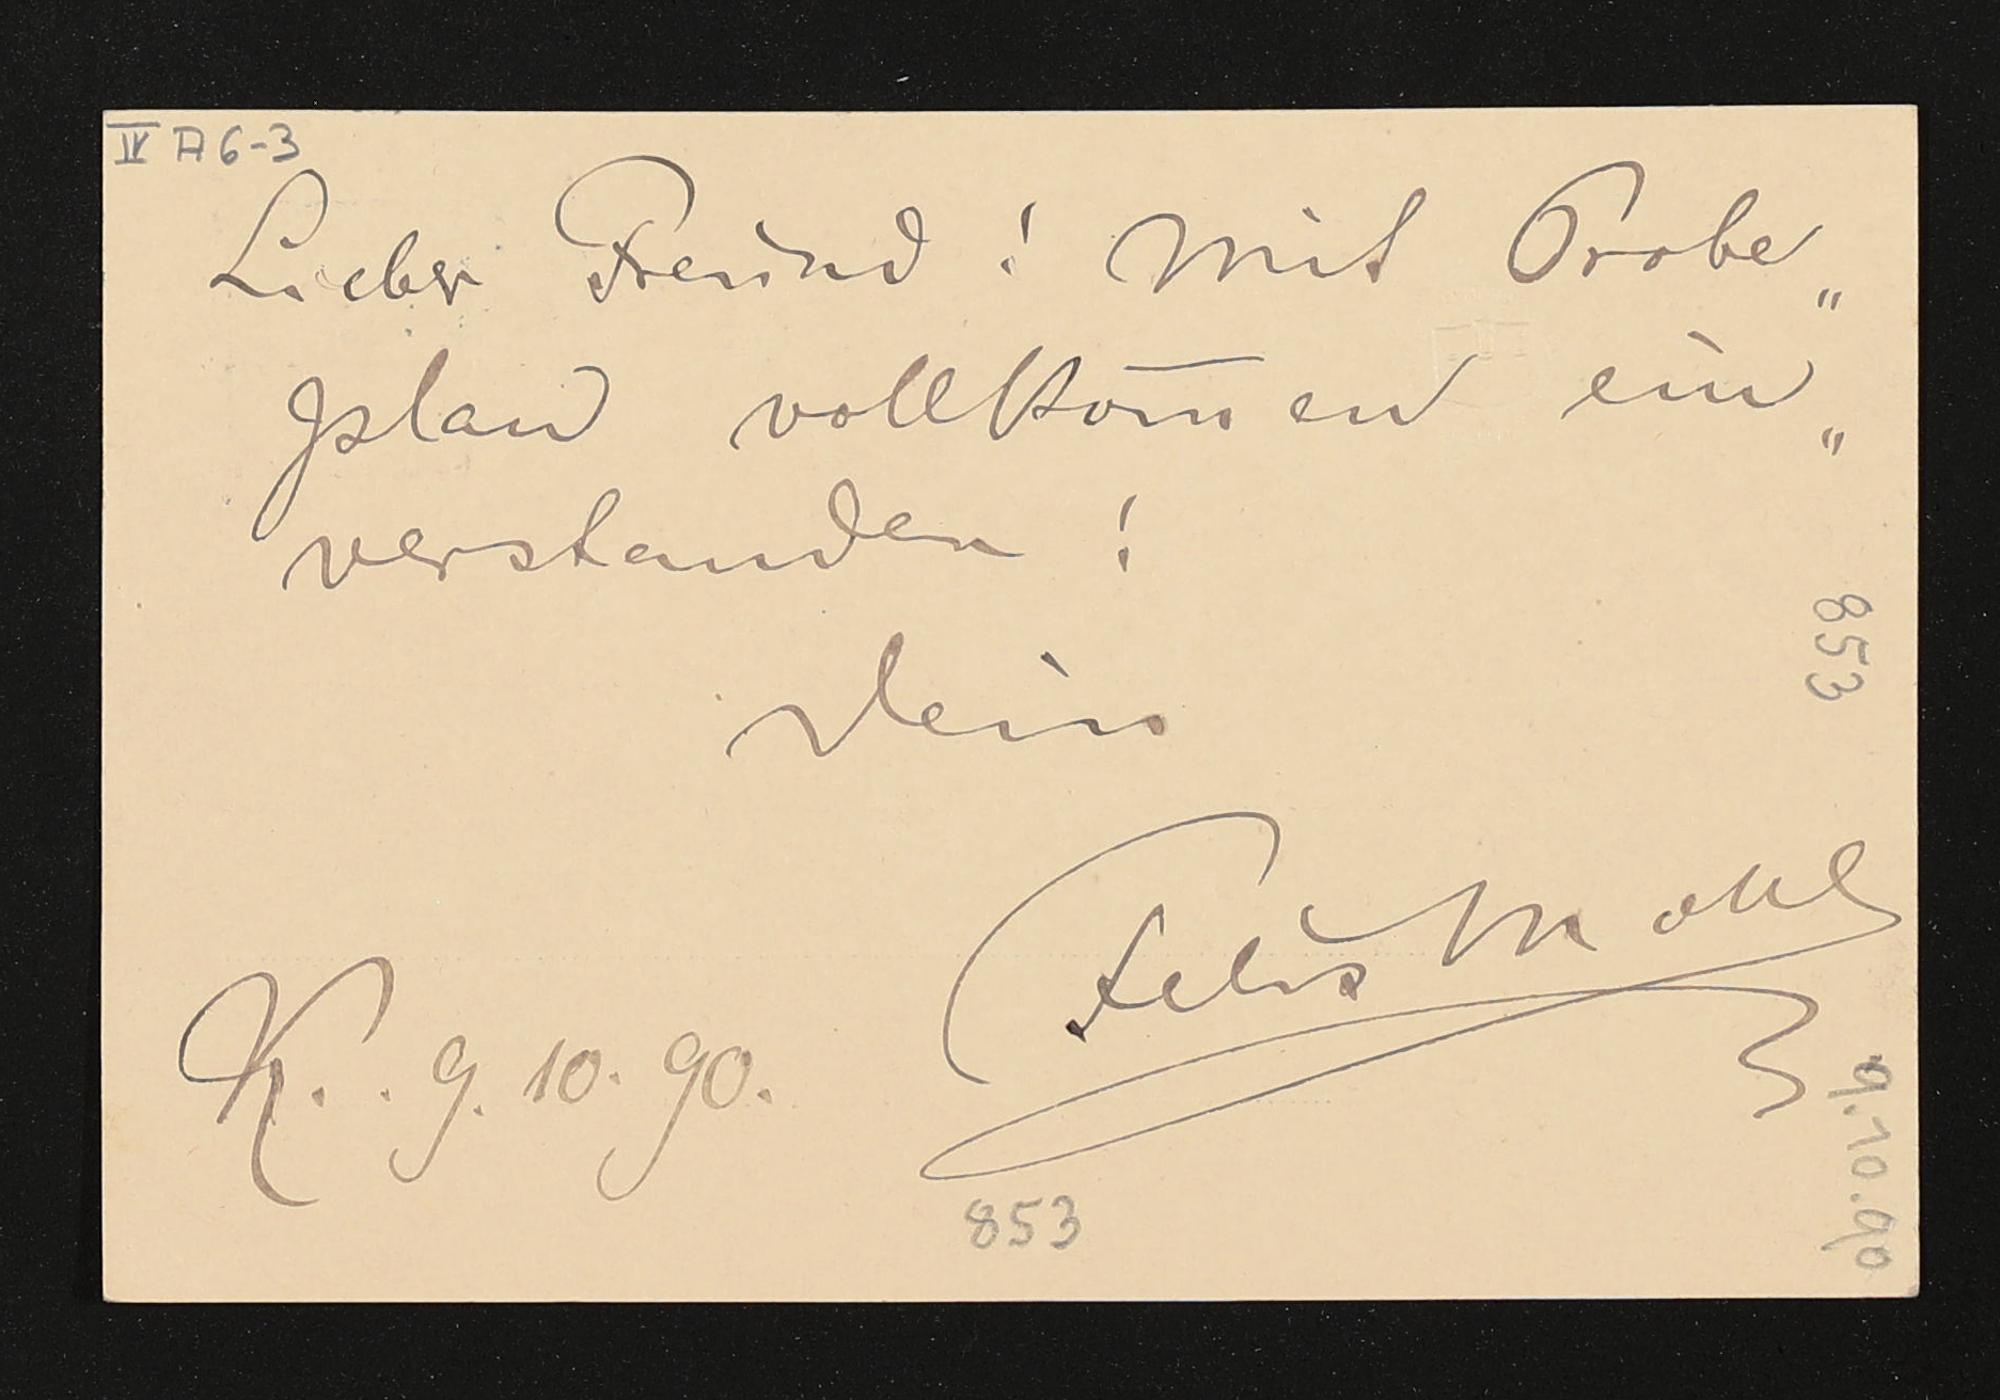 IV A 6-3
Lieber Freund! Mit Probe„
plan vollkom̅en ein„
verstanden!
Dein
Felix Mottl
K. . 9. 10. 90.
853
853
9.10.90